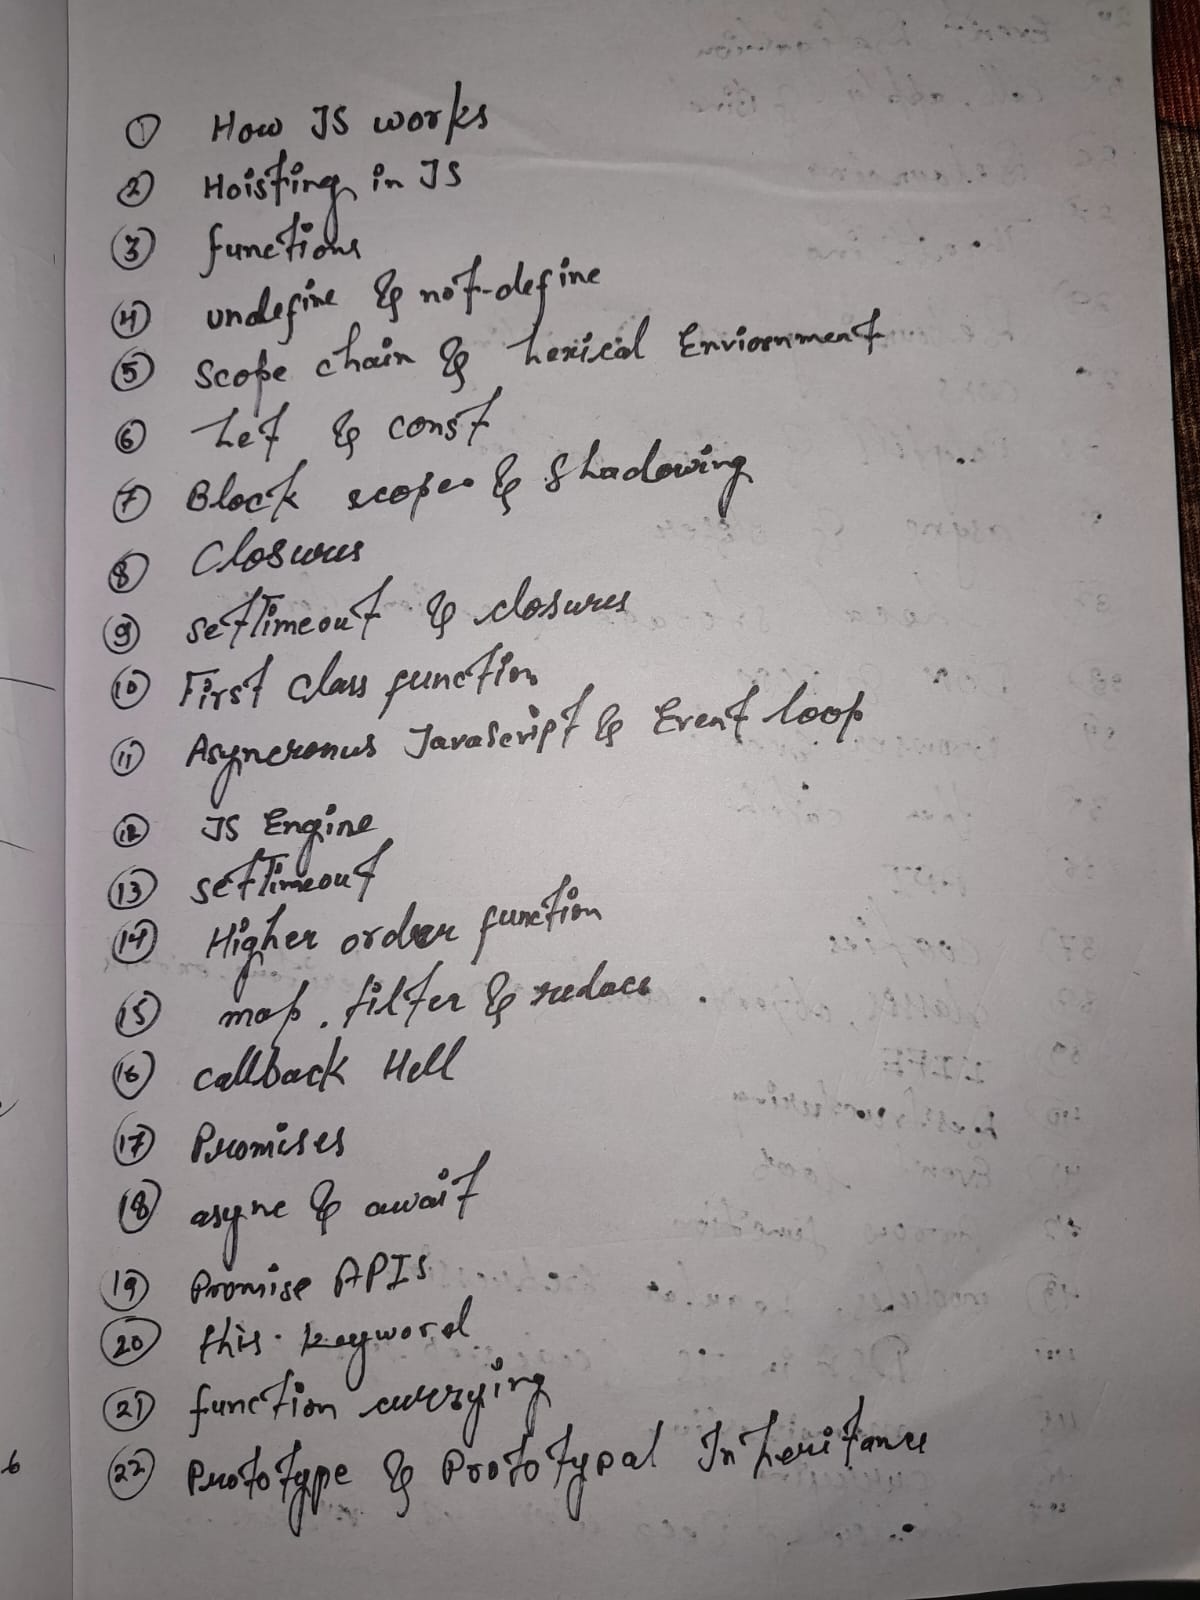 ① How JS works
② Hoisting in JS
③ functions
④ undefine & not-define
⑤ Scope chain & Lexical Enviornment
⑥ Let & const
⑦ Block scope & Shadowing
⑧ Closures
⑨ setTimeout & closures
⑩ First class function
⑪ Asyncronus JavaScript & Event loop
⑫ JS Engine
⑬ setTimeout
⑭ Higher order function
⑮ map, filter & reduce
⑯ callback Hell
⑰ Promises
⑱ async & await
⑲ Promise APIs
⑳ this keyword
㉑ function currying
㉒ Prototype & Prototypal Inheritance